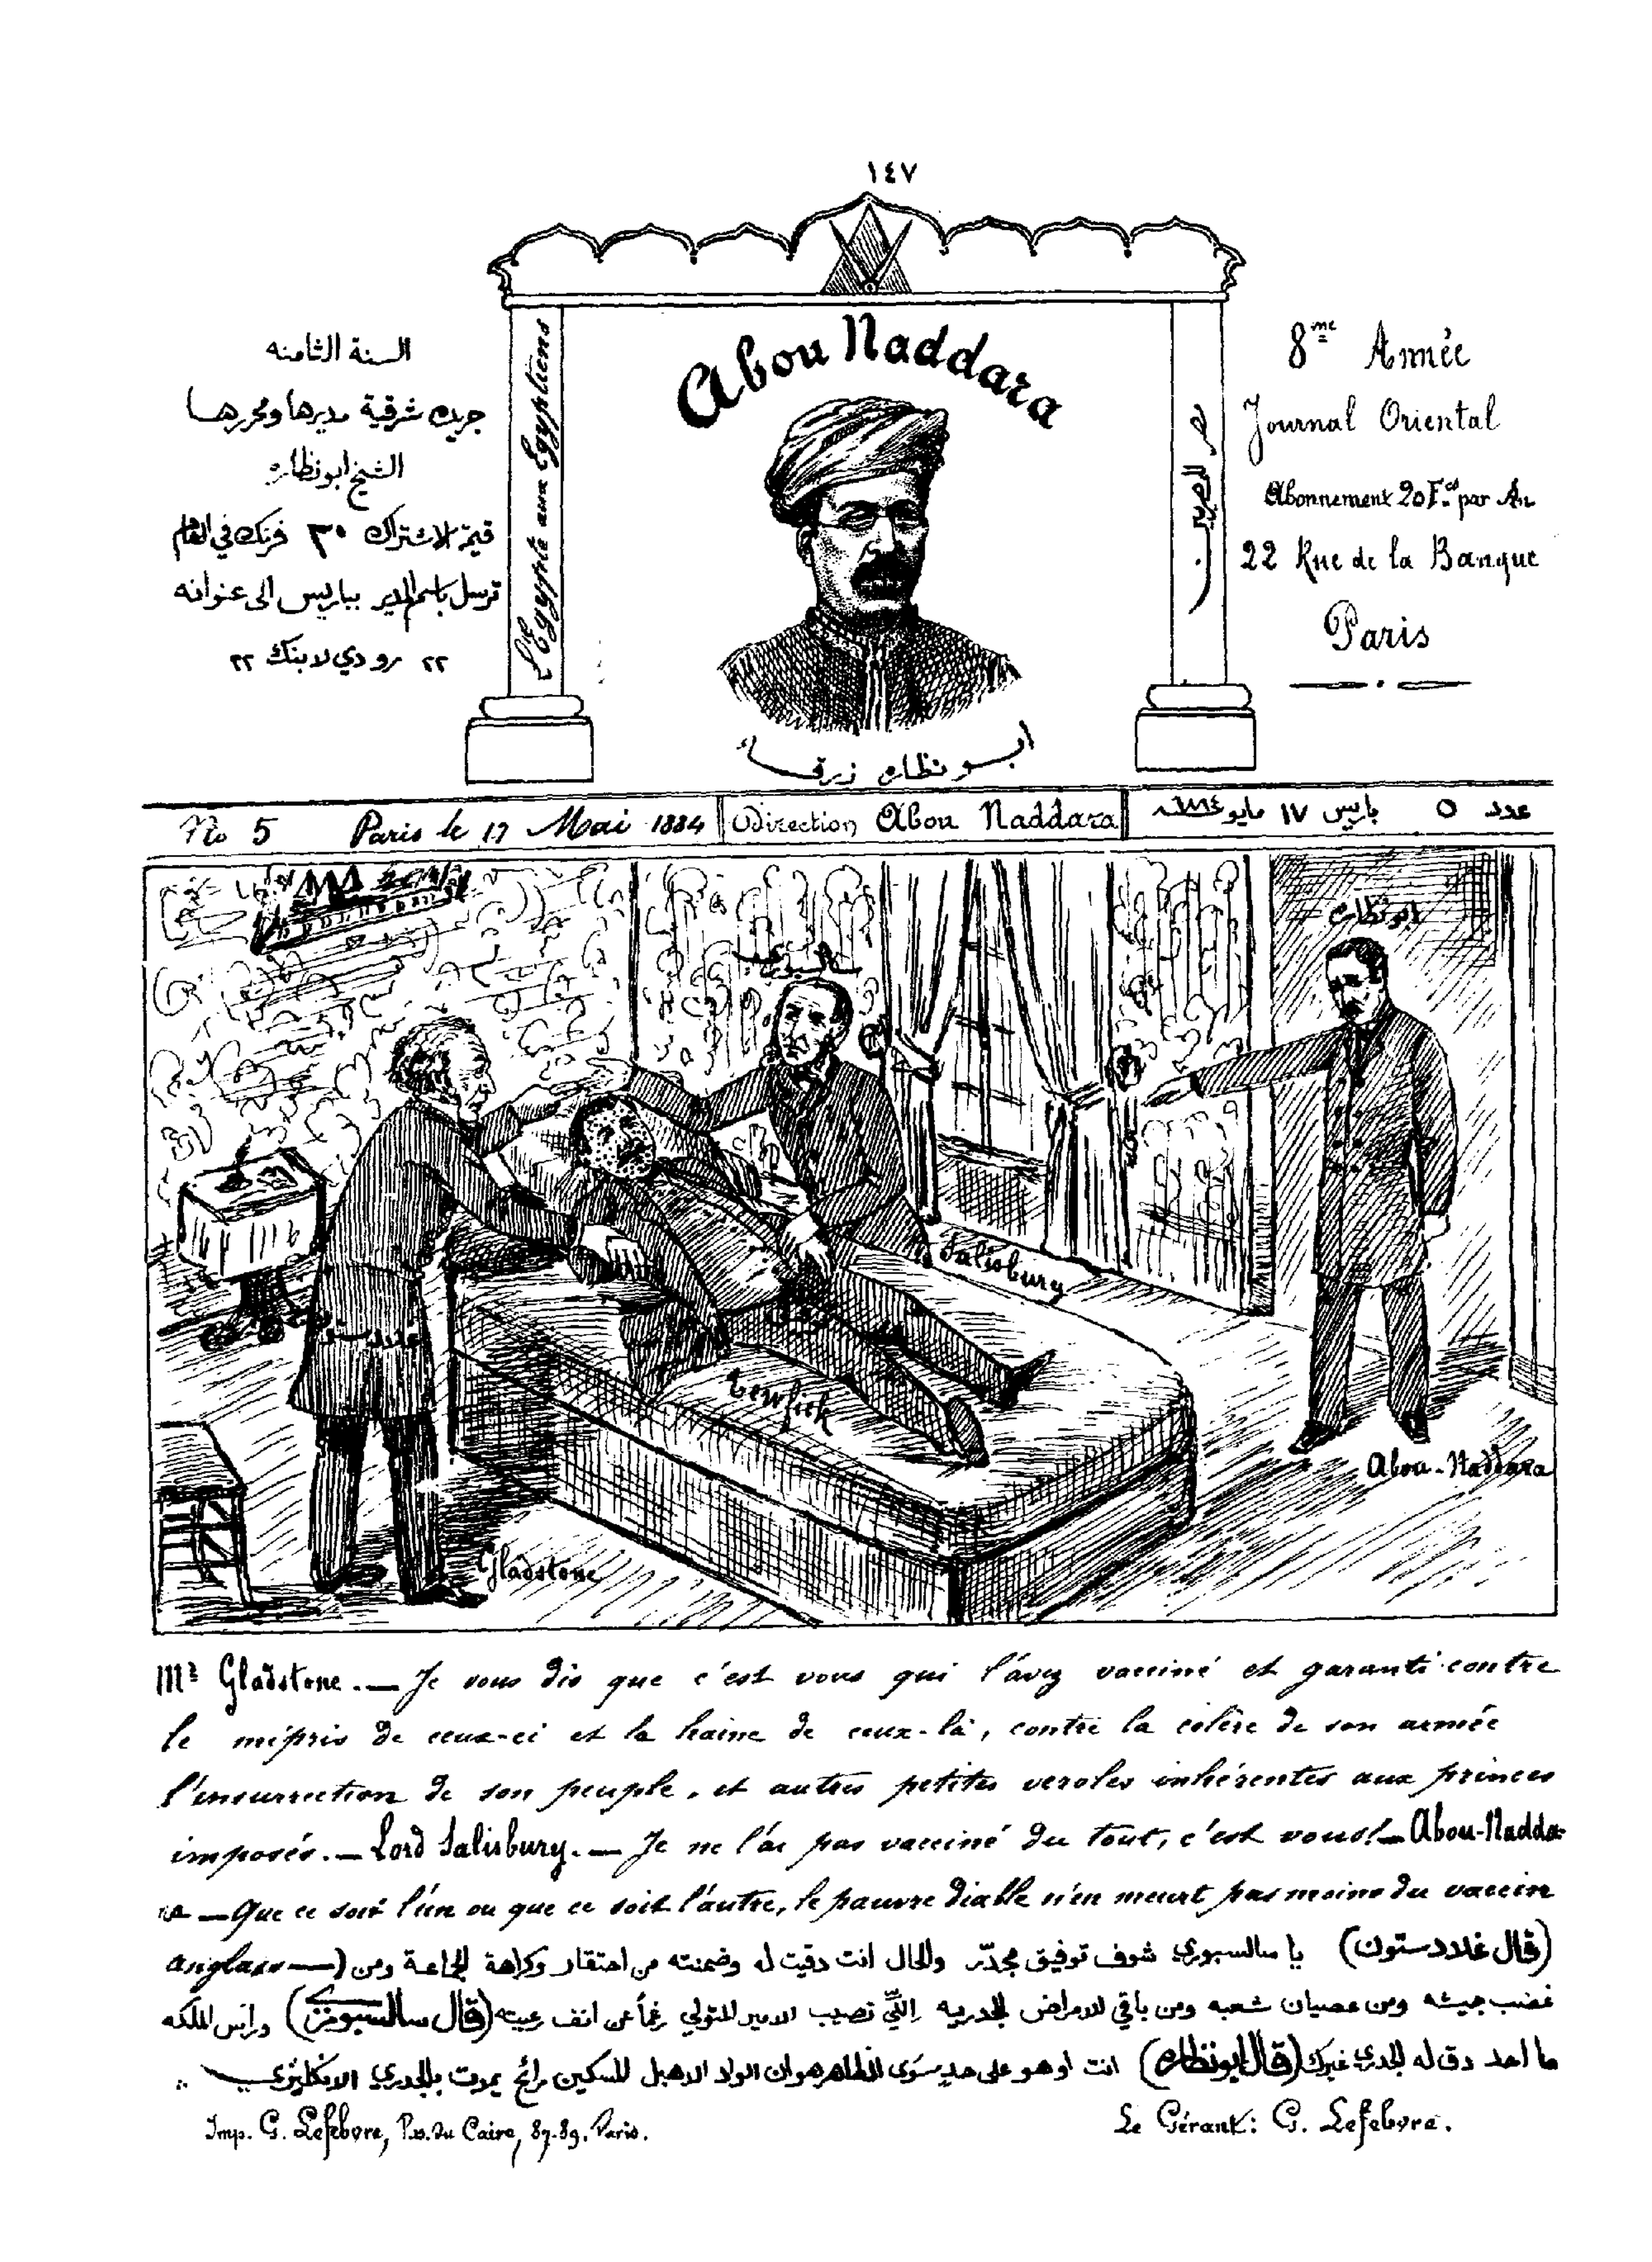 ١٤٧
السنة الثامنه
جريده شرقية مديرها ومحررها
الشيخ ابو نظاره
قيمة الاشتراك ٣٠ فرنك في العام
ترسل باسم المدير بباريس الى عنوانه
٢٢ رو دي لابنك ٢٢
L'Egypte aux Egyptiens
Abou Naddara
ابو نظاره زرقا
مصر للمصريين
8me Année
Journal Oriental
Abonnement 20 F.cs par An
22 Rue de la Banque
Paris
No 5 Paris le 17 Mai 1884
Direction Abou Naddara
عدد ٥ باريس ١٧ مايو ١٨٨٤
ابو نظاره
سالسبوري
غلادستون
Salisbury
Tewfick
Abou-Naddara
Gladstone
Mr Gladstone. — Je vous dis que c'est vous qui l'avez vacciné et garanti contre
le mépris de ceux-ci et la haine de ceux-là, contre la colère de son armée
l'insurrection de son peuple, et autres petites veroles inhérentes aux princes
imposés. — Lord Salisbury. — Je ne l'ai pas vacciné du tout, c'est vous! — Abou-Nadda-
ra — Que ce soit l'un ou que ce soit l'autre, le pauvre diable n'en meurt pas moins du vaccin
anglais —
(قال غلادستون) يا سالسبوري شوف توفيق مجدّر والحال انت دقيت له وضمنته من احتقار وكراهة الجماعة ومن
غضب جيشه ومن عصيان شعبه ومن باقي الامراض الجدريه اللّي تصيب الامير المتولي رغماً عن انف رعيته (قال سالسبوري) وراس الملكه
ما احد دق له الجدري غيرك (قال ابو نظاره) انت او هو على حد سوى الظاهر هو ان الولد الاهبل المسكين رائح يموت بالجدري الانكليزي
Imp. G. Lefebvre, P.s. du Caire, 87-89, Paris.
Le Gérant: G. Lefebvre.